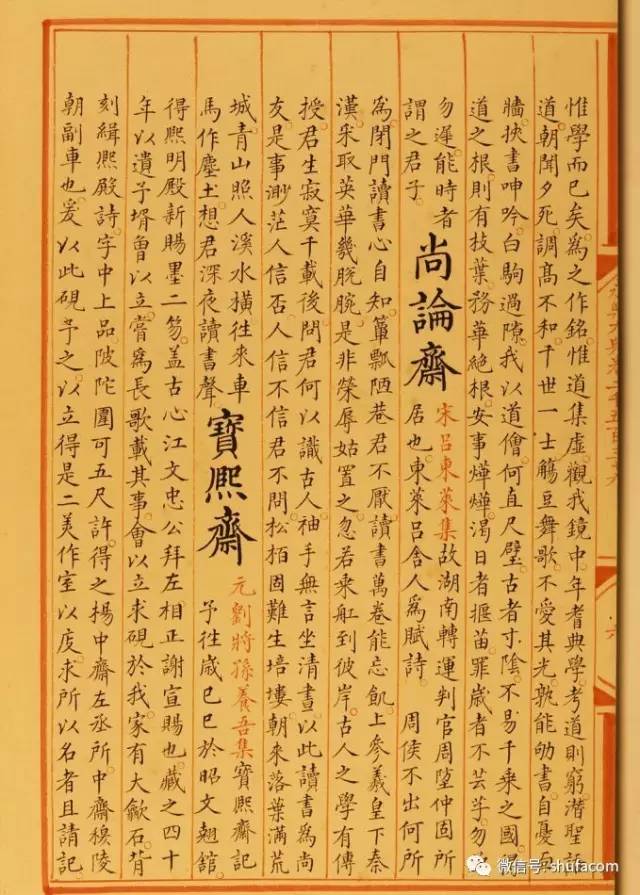 惟學而已矣爲之作銘惟道集虛觀我鏡中年耆典學考道則窮潛聖
道朝聞夕死調高不和千世一士觴豆舞歌不愛其光孰能劬書自憂
牆挾書呻吟白駒過隙我以道儈何直尺璧古者寸陰不易千乘之國
道之根則有技葉務華絕根安事燁燁渴日者揠苗罪歲者不芸芓勿
勿遲能時者
謂之君子
尚論齋
宋呂東萊集故湖南轉運判官周堕仲固所
居也東萊呂舍人爲賦詩 周侯不出何所
爲閉門讀書心自知簞瓢陋巷君不厭讀書萬卷能忘飢上參羲皇下秦
漢采取英華幾脫腕是非榮辱姑置之忽若乘舡到彼岸古人之學有傳
授君生寂寞千載後問君何以識古人袖手無言坐清晝以此讀書爲尚
友是事渺茫人信否人信不信君不問松栢固難生培塿朝來落葉滿荒
城青山照人溪水橫往來車
馬作塵土想君深夜讀書聲
寶熙齋
元劉將孫養吾集寶熙齋記
予往歲己巳於昭文翹舘
得熙明殿新賜墨二笏蓋古心江文忠公拜左相正謝宣賜也藏之四十
年以遺子壻曾以立嘗爲長歌載其事會以立求硯於我家有大歙石背
刻緝熙殿詩字中上品陂陀圍可五尺許得之揚中齋左丞所中齋穆陵
朝副車也爰以此硯予之以立得是二美作室以庋求所以名者且請記
微信号: shufacom